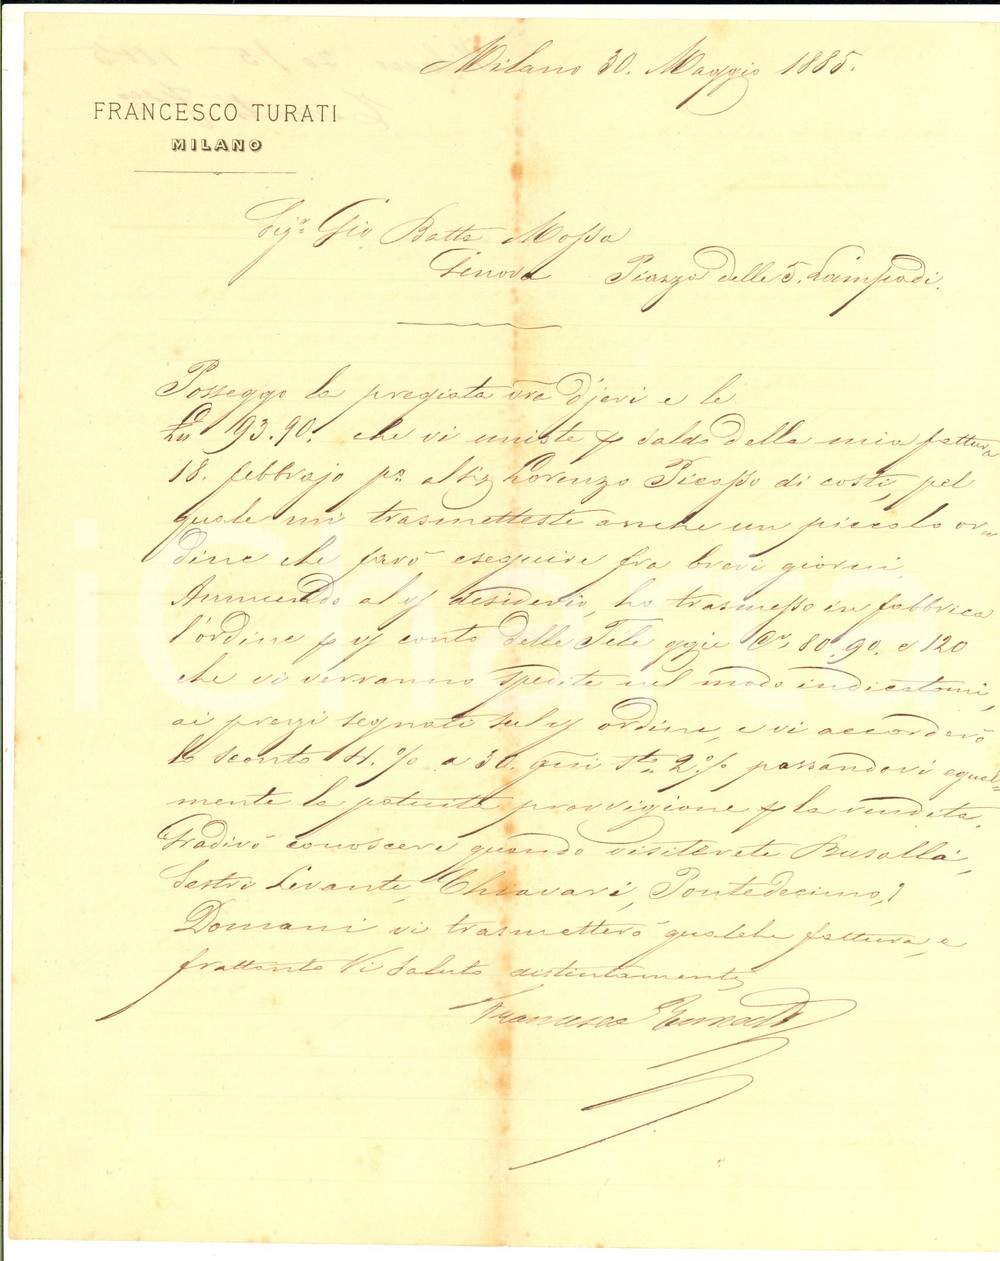 Milano 30. Maggio 1885.
FRANCESCO TURATI
MILANO
Sigr. Gio Batta Mossa
Genova Piazza delle 5. Lampadi.
Posseggo la pregiata vra d'jeri e le
193.90. che vi uniste p saldo della mia fattura
18. febbrajo pa. al Sig Lorenzo Picasso di costì, pel
quale mi trasmetteste anche un piccolo or-
dine che farò eseguire fra brevi giorni.
Annuendo al vs desiderio, ho trasmesso in fabbrica
l'ordine p vs conto delle Tele ggie Cr. 80. 90. e 120
che vi verranno spedite nel modo indicatomi,
ai prezzi segnati sul vs ordine, e vi accorderò
lo sconto 4.% a 30. gni Sto. 2.% passandovi egual-
mente la patuita provvigione p la vendita.
Gradirò conoscere quando visiterete Busalla,
Sestri Levante, Chiavari, Pontedecimo,?
Domani vi trasmetterò qualche fattura, e
frattanto Vi saluto distintamente
Francesco Turati
iCharta